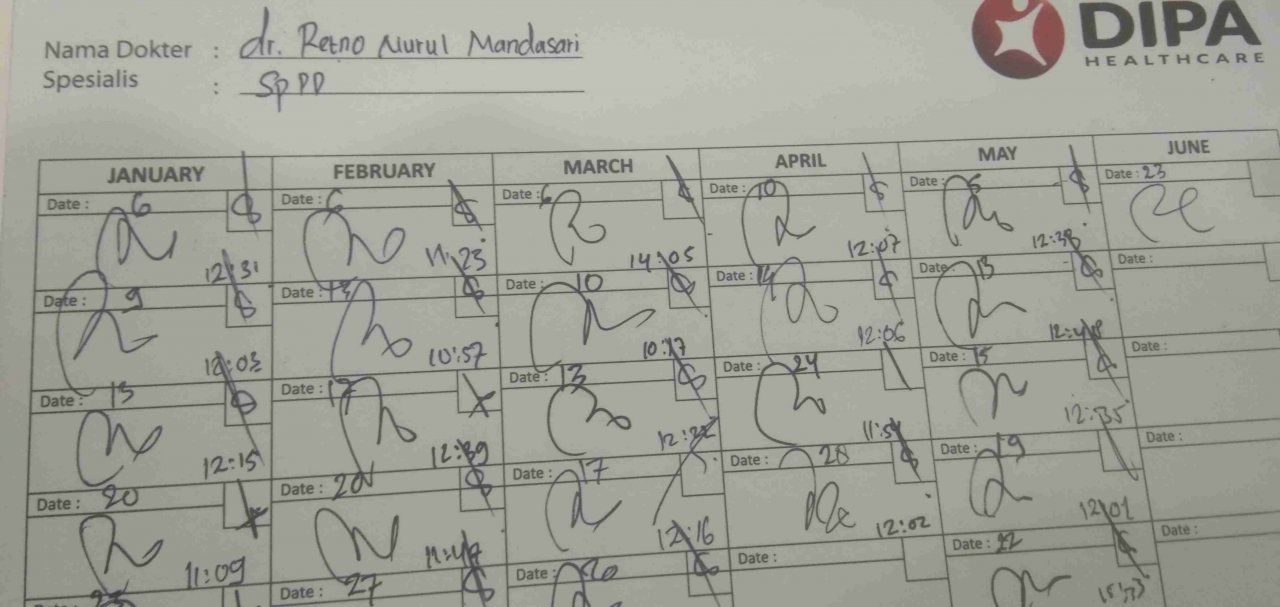 DIPA
HEALTHCARE
Nama Dokter : dr. Retno Nurul Mandasari
Spesialis : SpPD
JANUARY FEBRUARY MARCH APRIL MAY JUNE
Date : 6 Date : 6 Date : 6 Date : 10 Date : 5 Date : 23
12:31 11:23 14:05 12:07 12:38
Date : 9 Date : 13 Date : 10 Date : 14 Date : 13 Date :
12:03 10:57 10:17 12:06
Date : 13 Date : 17 Date : 13 Date : 24 Date : 15 Date :
12:15 12:39 11:54 12:35
Date : 20 Date : 20 Date : 17 Date : 28 Date : 19 Date :
11:09 11:47 12:16 12:02 12:01
Date : 27 Date : 20 Date : Date : 22 Date :